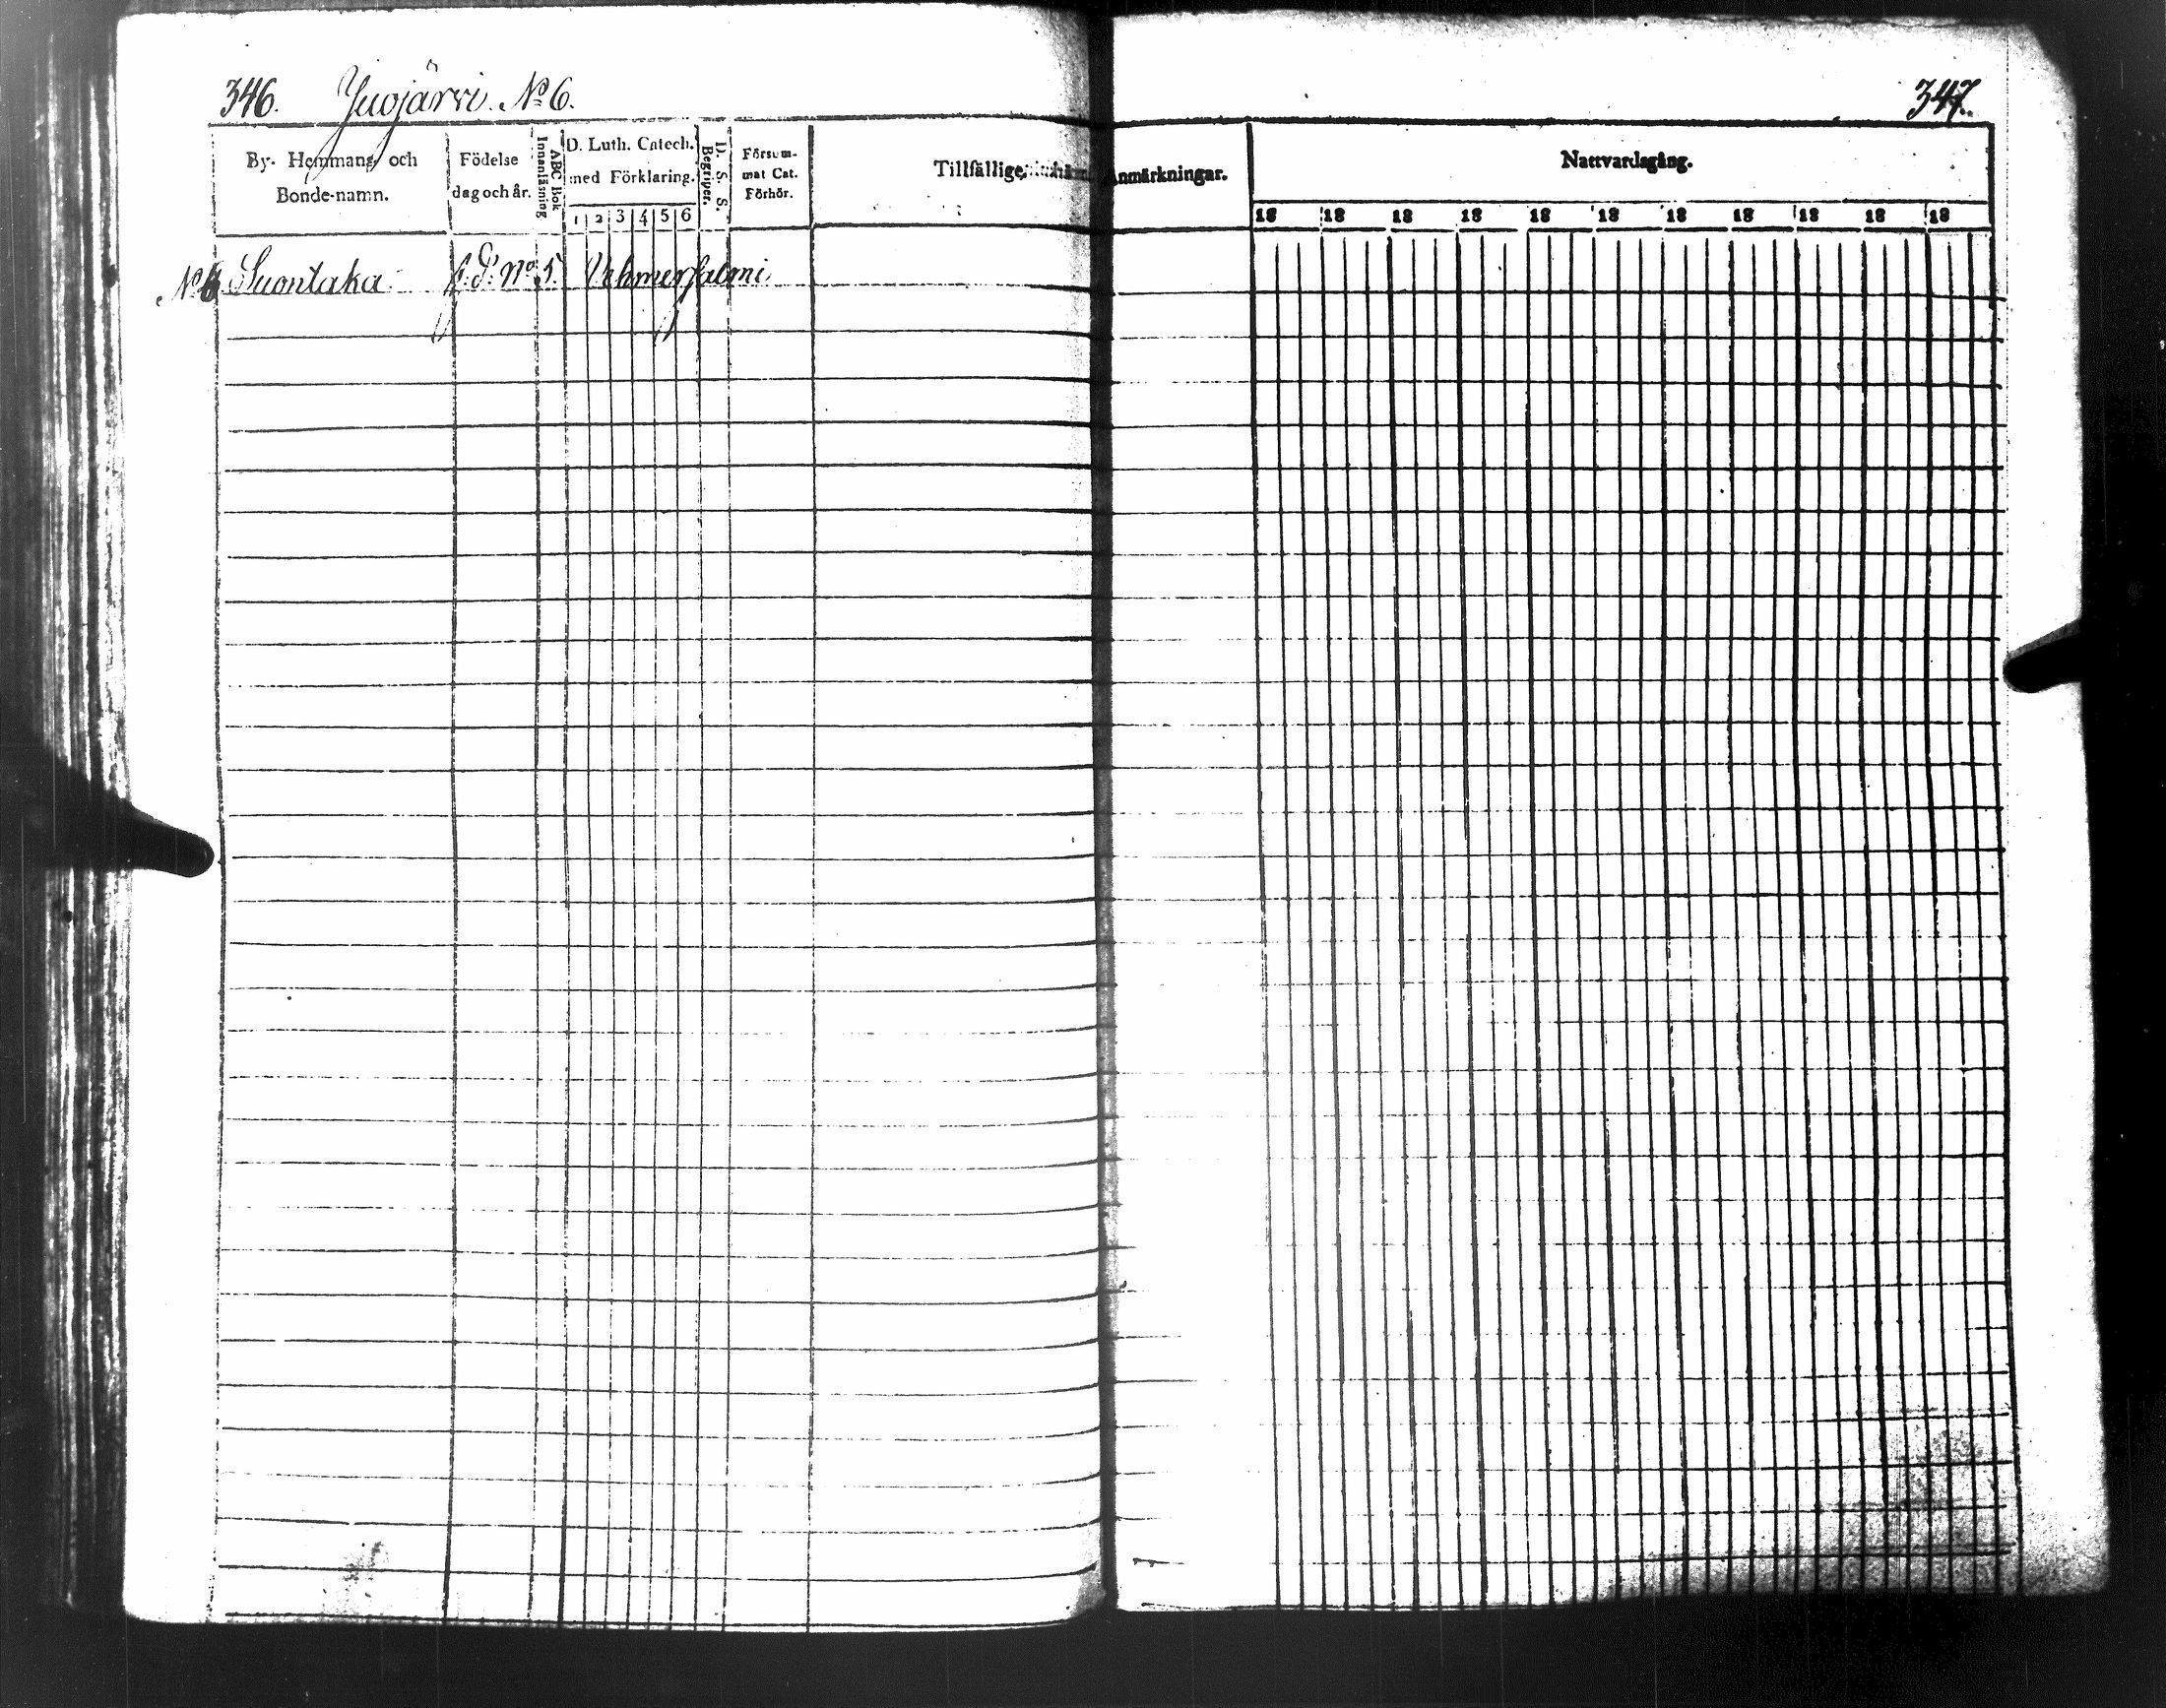 346. Juojärvi. No 6.
347.
By- Hemmans och Bonde-namn.
Födelse dag och år.
ABC Bok
Innanläsning
D. Luth. Catech. med Förklaring.
1 2 3 4 5 6
D. S. S.
Begriper.
Försum-
mat Cat.
Förhör.
Tillfällige Anmärkningar.
Nattvardsgång.
18 18 18 18 18 18 18 18 18 18 18
No 6 Suontaka No 5. Vehmersalmi